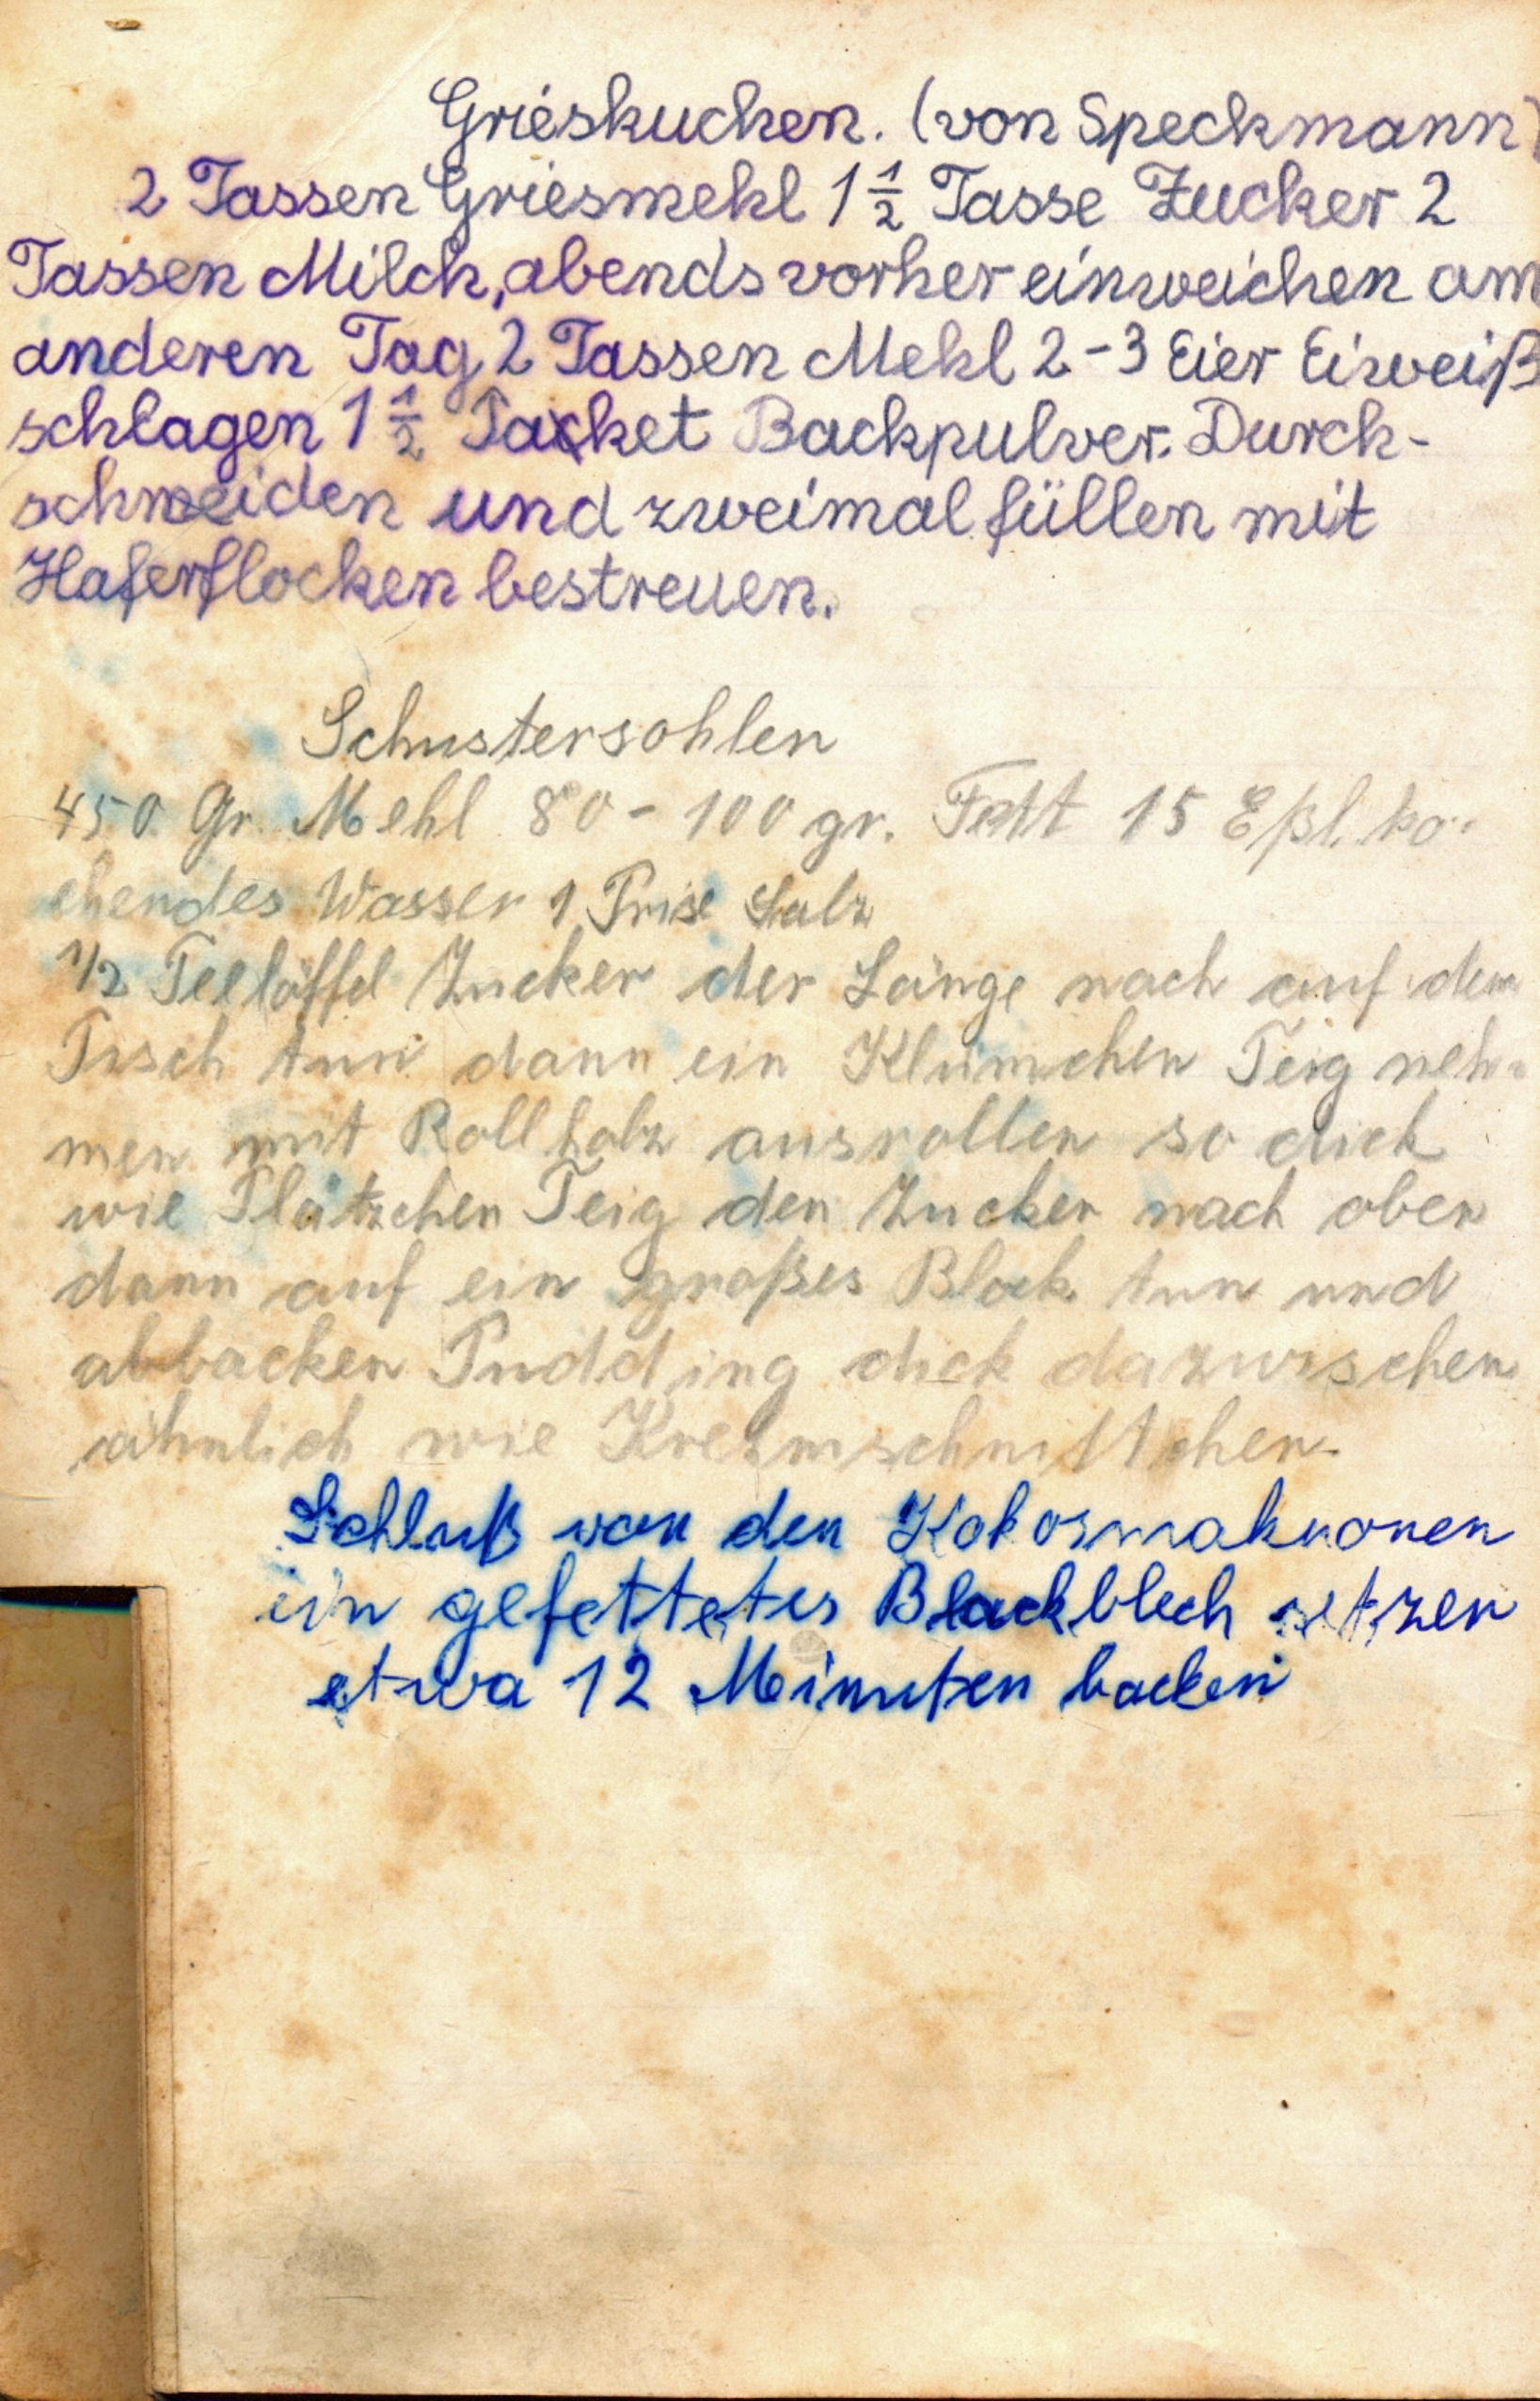 Grieskuchen. (von Speckmann)
2 Tassen Griesmehl 1 1/2 Tasse Zucker 2
Tassen Milch, abends vorher einweichen am
anderen Tag 2 Tassen Mehl 2-3 Eier Eiweiß
schlagen 1 1/2 Packet Backpulver. Durch-
schneiden und zweimal füllen mit
Haferflocken bestreuen.
Schustersohlen
450 Gr. Mehl 80 - 100 gr. Fett 15 Eßl. ko-
chendes Wasser 1 Prise Salz
1/2 Teelöffel Zucker der Länge nach auf dem
Tisch tun dann ein Klümchen Teig neh-
men mit Rollholz ausrollen so dick
wie Plätzchen Teig den Zucker nach oben
dann auf ein großes Block tun und
abbacken Pudding dick dazwischen
ähnlich wie Kremschnittchen.
Schluß von den Kokosmakronen
in gefettetes Backblech setzen
etwa 12 Minuten backen